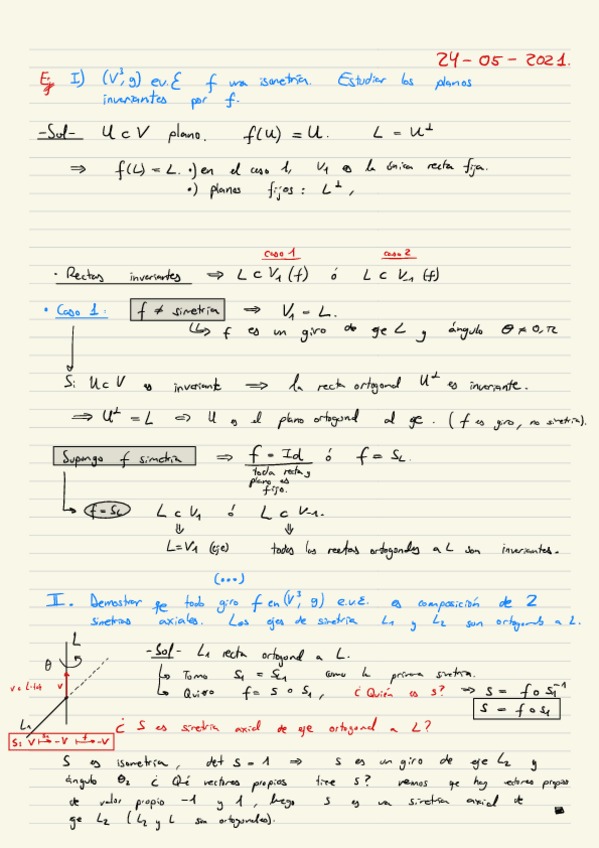 24-05-2021.
Ej I) (V³, g) e.v.E f una isometría. Estudiar los planos
invariantes por f.
-Sol- U ⊂ V plano. f(U) = U. L = U⊥
⇒ f(L) = L. •) en el caso 1, V₁ es la única recta fija.
•) planos fijos: L⊥,
caso 1 caso 2
• Rectas invariantes ⇒ L ⊂ V₁(f) ó L ⊂ V₋₁(f)
• Caso 1: f ≠ simetría ⇒ V₁ = L.
↳ f es un giro de eje L y ángulo θ ≠ 0, π
Si U ⊂ V es invariante ⇒ la recta ortogonal U⊥ es invariante.
⇒ U⊥ = L ⇔ U es el plano ortogonal al eje. (f es giro, no simetría).
Supongo f simetría ⇒ f = Id ó f = S_L.
toda recta y
plano es
fijo.
f = S_L L ⊂ V₁ ó L ⊂ V₋₁.
⇓ ⇓
L = V₁ (eje) todas las rectas ortogonales a L son invariantes.
(...)
II. Demostrar que todo giro f en (V³, g) e.v.E. es composición de 2
simetrías axiales. Los ejes de simetría L₁ y L₂ son ortogonales a L.
L
θ
v
L₁
-Sol- L₁ recta ortogonal a L.
↳ Tomo S₁ = S_L₁ como la primera simetría.
↳ Quiero f = s ∘ s₁, ¿Quién es s? ⇒ s = f ∘ s₁⁻¹
s = f ∘ s₁
¿ S es simetría axial de eje ortogonal a L?
S: V ↦ -V ↦ -V
S es isometría, det s = 1 ⇒ s es un giro de eje L₂ y
ángulo θ₂ ¿ Qué vectores propios tiene s? vemos que hay vectores propios
de valor propio -1 y 1, luego s es una simetría axial de
eje L₂ (L₂ y L son ortogonales).